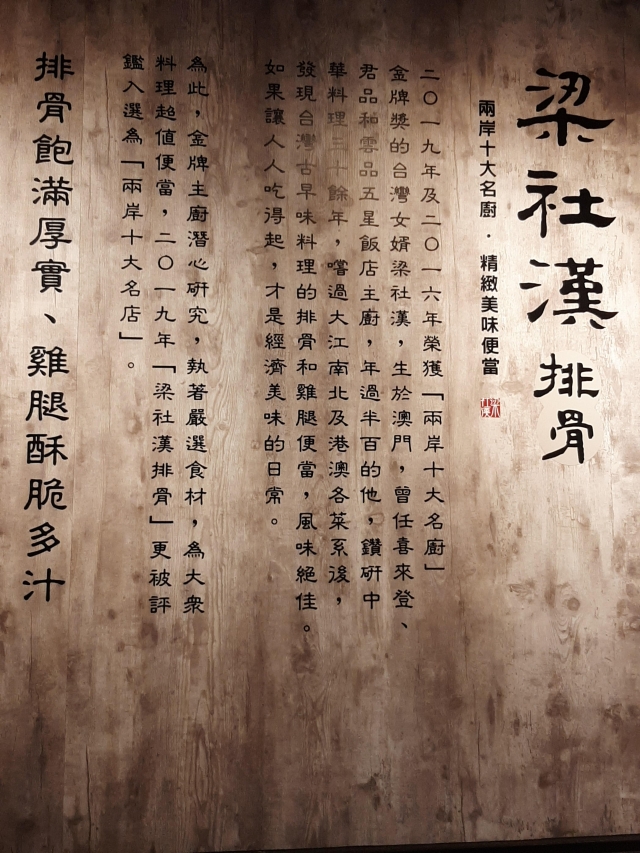 梁社漢排骨
兩岸十大名廚．精緻美味便當
二〇一九年及二〇一六年榮獲「兩岸十大名廚」
金牌獎的台灣女婿梁社漢，生於澳門，曾任喜來登、
君品和雲品五星飯店主廚，年過半百的他，鑽研中
華料理三十餘年，嚐過大江南北及港澳各菜系後，
發現台灣古早味料理的排骨和雞腿便當，風味絕佳。
如果讓人人吃得起，才是經濟美味的日常。
為此，金牌主廚潛心研究，執著嚴選食材，為大眾
料理超值便當，二〇一九年「梁社漢排骨」更被評
鑑入選為「兩岸十大名店」。
排骨飽滿厚實、雞腿酥脆多汁